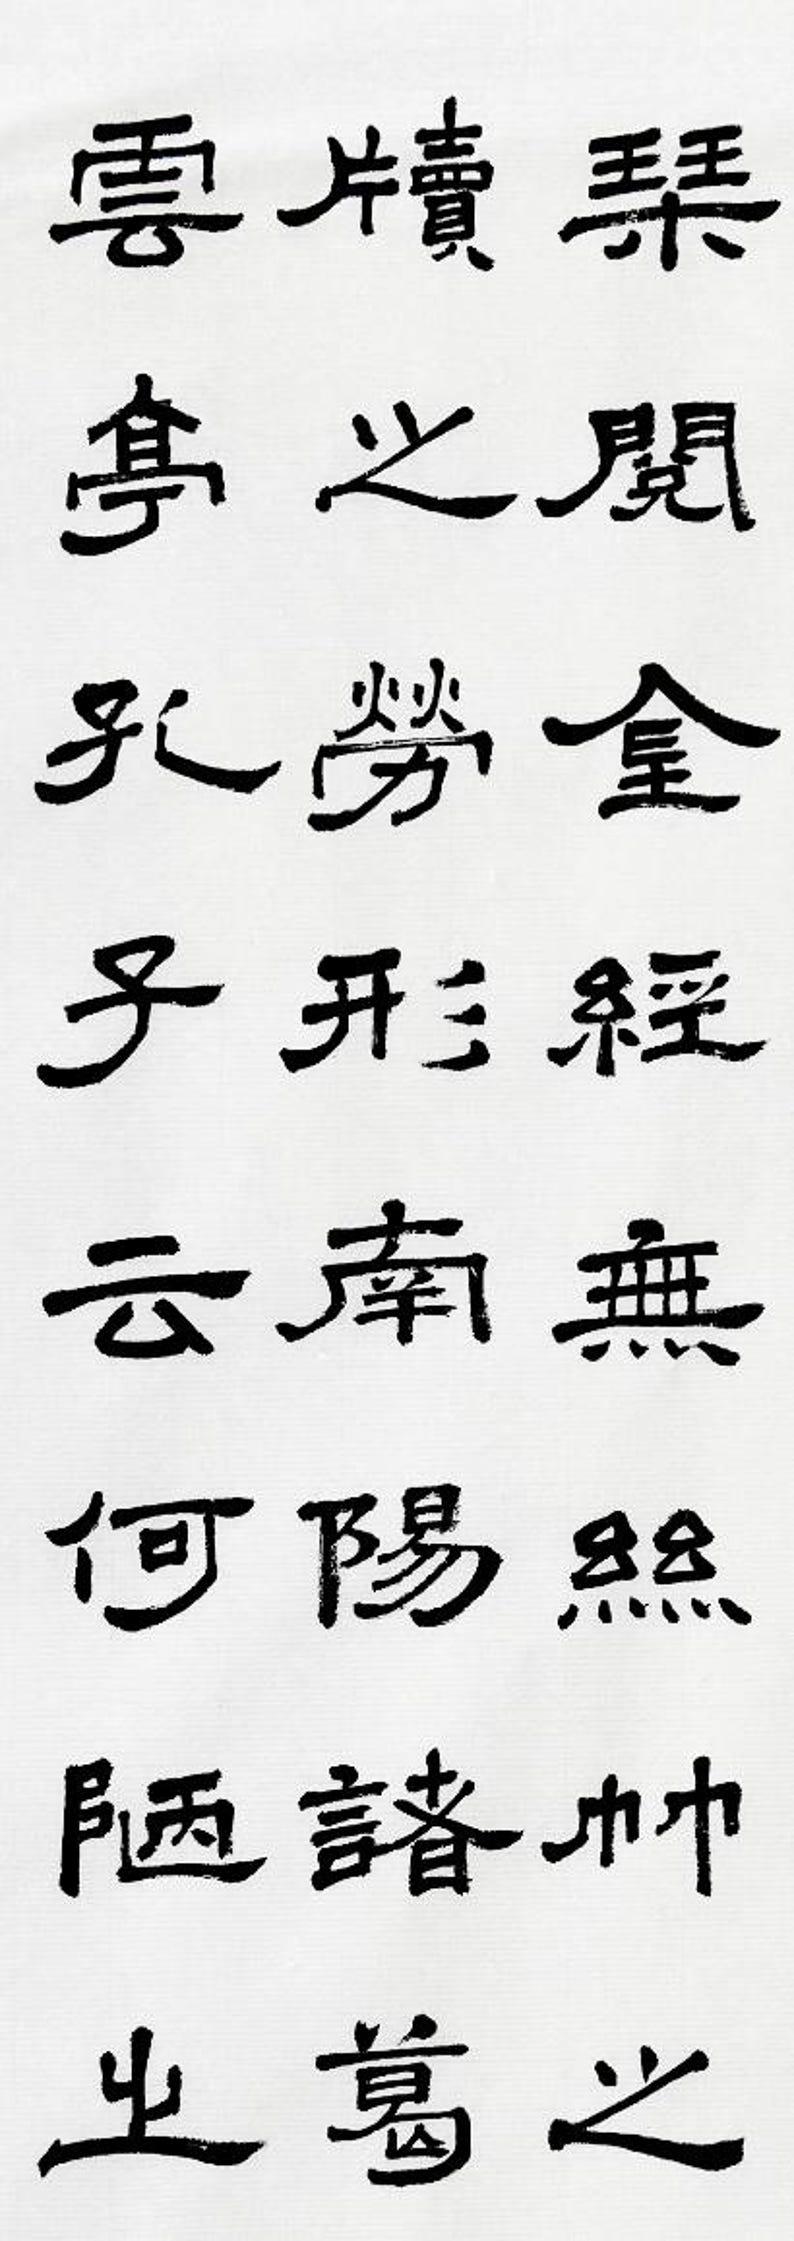 琹閱金經無絲竹之
牘之勞形南陽諸葛
雲亭孔子云何陋之